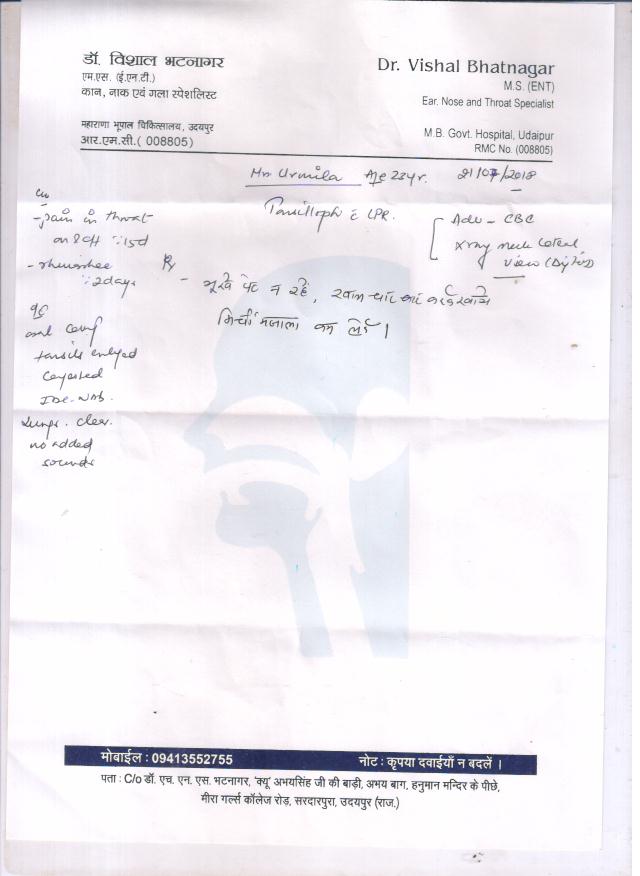 डॉ. विशाल भटनागर
एम.एस. (ई.एन.टी.)
कान, नाक एवं गला स्पेशलिस्ट
महाराणा भूपाल चिकित्सालय, उदयपुर
आर.एम.सी.( 008805)
Dr. Vishal Bhatnagar
M.S. (ENT)
Ear, Nose and Throat Specialist
M.B. Govt. Hospital, Udaipur
RMC No. (008805)
Urmila Age 23yr. /2018
LPR.
Adv - CBC
Xray neck lateral
view
- pain in throat
on & off
2days
Rx
- भूखे पेट न रहें,
मिर्ची मसाला कम लेवें।
tonsils
congested
Lungs. clear.
no added
sounds
मोबाईल : 09413552755
नोट : कृपया दवाईयाँ न बदलें ।
पता : C/o डॉ. एच. एन. एस. भटनागर, 'क्यू' अभयसिंह जी की बाड़ी, अभय बाग, हनुमान मन्दिर के पीछे,
मीरा गर्ल्स कॉलेज रोड़, सरदारपुरा, उदयपुर (राज.)